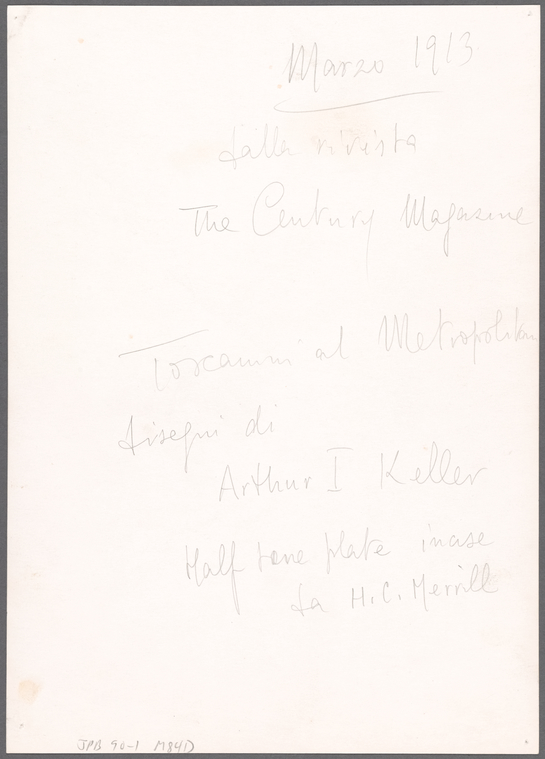 Marzo 1913
dalla rivista
The Century Magazine
Toscanini al Metropolitan
disegni di
Arthur I Keller
Half tone plate incise
da H.C. Merrill
JPB 90-1 M84D